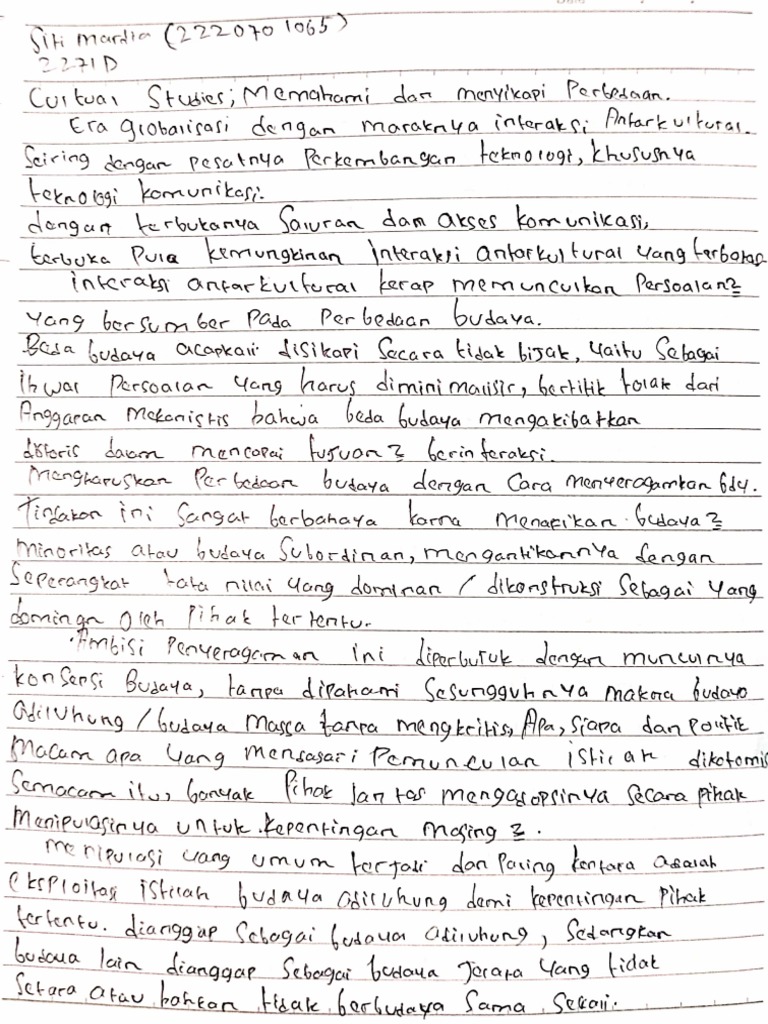 Siti mardia (2220701065)
2271D
Cultual Studies; Memahami dan menyikapi Perbedaan.
Era globalisasi dengan maraknya interaksi Antarkultural.
Seiring dengan pesatnya Perkembangan teknologi, khususnya
teknologi komunikasi.
dengan terbukanya Saluran dam akses komunikasi,
terbuka Pula kemungkinan interaksi antarkultural yang terbatas
interaksi antarkultural kerap memunculkan Persoalan2
yang bersumber Pada Perbedaan budaya.
Beda budaya acapkali disikapi Secara tidak bijak, yaitu Sebagai
ihwal Persoalan yang harus diminimalisir, bertitik tolak dari
Anggapan Mekanistis bahwa beda budaya mengakibatkan
distorsi dalam mencapai tujuan2 berinteraksi.
Mengharuskan Perbedaan budaya dengan Cara menyeragamkan bdy.
Tindakan ini Sangat berbahaya karna menafikan budaya2
minoritas atau budaya Subordinan, mengantikannya dengan
Seperangkat tata nilai yang dominan / dikonstruksi Sebagai yang
dominan oleh Pihak tertentu.
Ambisi Penyeragaman ini diperburuk dengan munculnya
konsensi Budaya, tanpa dipahami Sesungguhnya makna budaya
adiluhung / budaya Massa tanpa mengkritis, Apa, Siapa dan Politik
Macam apa yang mendasari Pemunculan istilah dikotomis
Semacam itu, banyak Pihak lantas mengadopsinya Secara pihak
Menipulasinya untuk kepentingan Masing2.
Menipulasi yang umum terjadi dan Paling kentara adalah
eksploitasi istilah budaya adiluhung demi kepentingan Pihak
tertentu. dianggap Sebagai budaya adiluhung, Sedangkan
budaya lain dianggap Sebagai budaya Jelata yang tidak
Setara atau bahkan tidak berbudaya Sama Sekali.